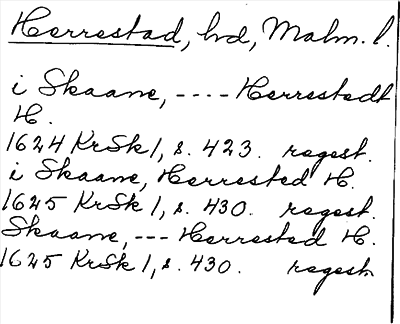 Herrestad, hd, Malm. l.
i Skaane, ---- Herrestedt
H.
1624 KrSk 1, s. 423. regest.
i Skaane, Herrested H.
1625 KrSk 1, s. 430. regest.
Skaane, --- Herrested H.
1625 KrSk 1, s. 430. regest.